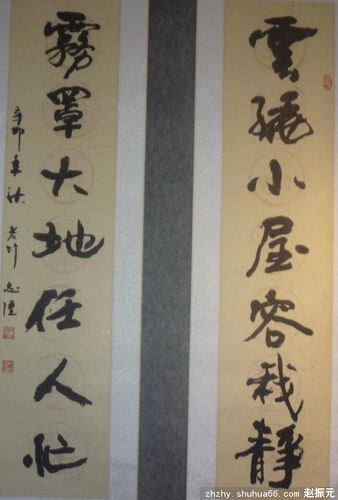 雲繞小屋容我靜
霧罩大地任人忙
辛卯 秋
zhzhy.shuhua66.com 赵振元